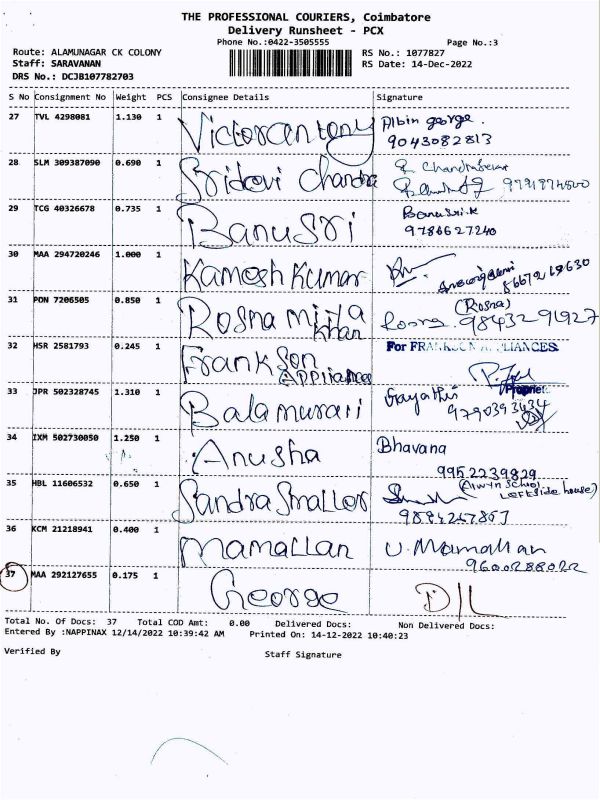 THE PROFESSIONAL COURIERS, Coimbatore
Delivery Runsheet - PCX
Phone No.:0422-3505555
Page No.:3
Route: ALAMUNAGAR CK COLONY
Staff: SARAVANAN
DRS No.: DCJB107782703
RS No.: 1077827
RS Date: 14-Dec-2022
S No Consignment No Weight PCS Consignee Details Signature
27 TVL 4298081 1.130 1 Victorantony Albin george.
9043082813
28 SLM 309387090 0.690 1 Sridevi Chandra
29 TCG 40326678 0.735 1 Banusri Banusri.k
9786627240
30 MAA 294720246 1.000 1 Kamesh Kumar
31 PDN 7206505 0.850 1 Rosna mitla (Rosna)
khan Rosna. 9843291927
32 HSR 2581793 0.245 1 Frankson For FRANKSON APPLIANCES
APPliances
Propriet
33 JPR 502328745 1.310 1 Balamurali Gayathri
9790393434
34 IXM 502730050 1.250 1 Anusha Bhavana
9952239829
35 HBL 11606532 0.650 1 Sandra Smaller
Leftside house)
9894247867
36 KCM 21218941 0.400 1 mamallan U. Mamallan
9600288022
37 MAA 292127655 0.175 1 George D/L
Total No. Of Docs: 37 Total COD Amt: 0.00 Delivered Docs: Non Delivered Docs:
Entered By :NAPPINAX 12/14/2022 10:39:42 AM Printed On: 14-12-2022 10:40:23
Verified By
Staff Signature